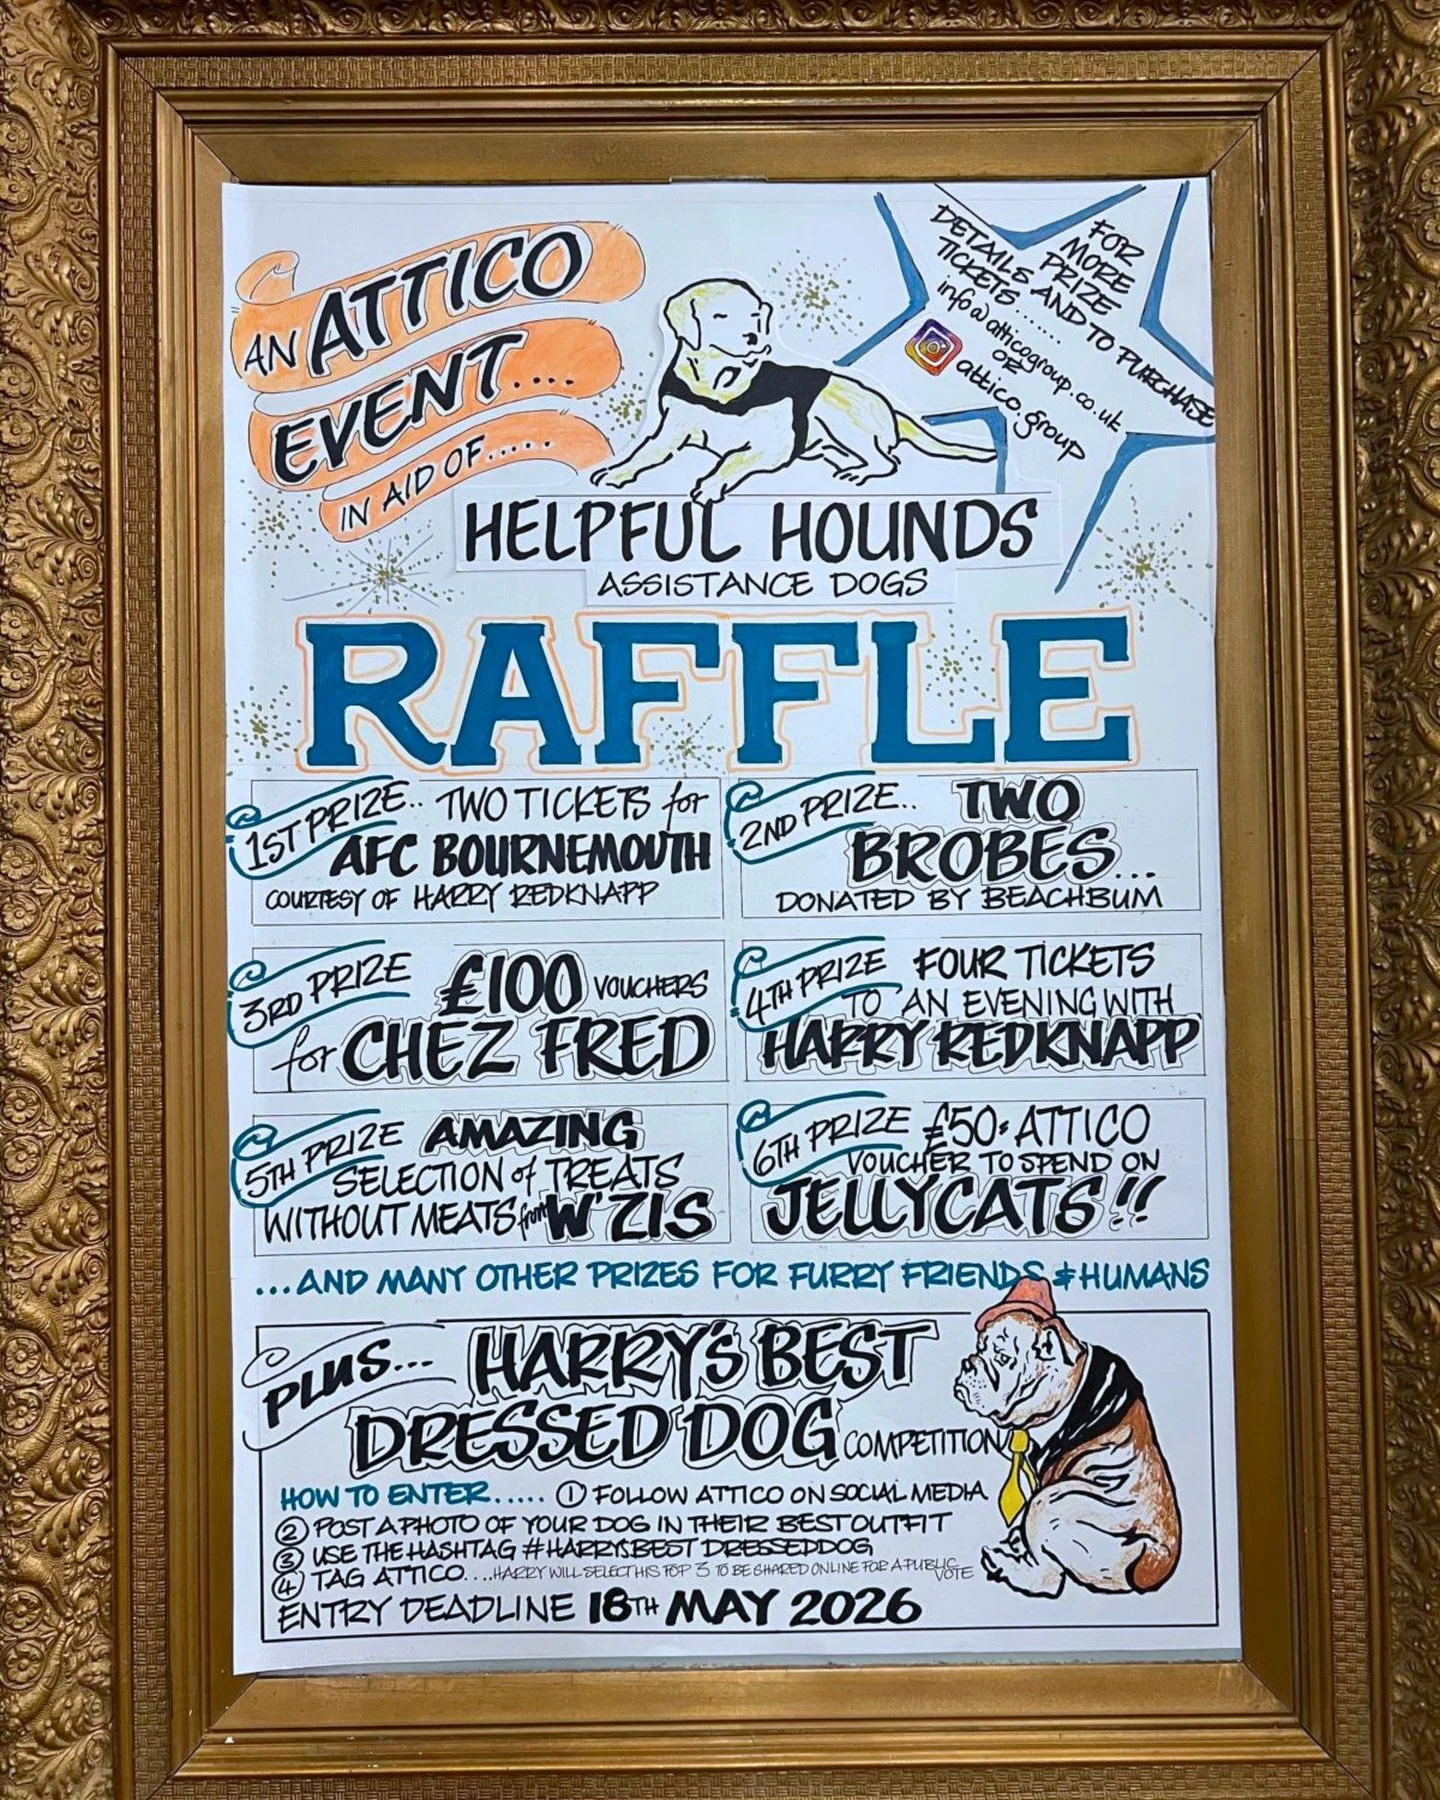 AN ATTICO
EVENT....
IN AID OF.....
FOR
MORE
PRIZE
DETAILS AND TO PURCHASE
TICKETS.......
info@atticogroup.co.uk
OR
attico.group
HELPFUL HOUNDS
ASSISTANCE DOGS
RAFFLE
1ST PRIZE.. TWO TICKETS for
AFC BOURNEMOUTH
COURTESY OF HARRY REDKNAPP
2ND PRIZE.. TWO
BROBES...
DONATED BY BEACHBUM
3RD PRIZE £100 VOUCHERS
for CHEZ FRED
4TH PRIZE FOUR TICKETS
TO AN EVENING WITH
HARRY REDKNAPP
5TH PRIZE AMAZING
SELECTION of TREATS
WITHOUT MEATS from W'ZIS
6TH PRIZE £50 ATTICO
VOUCHER TO SPEND ON
JELLYCATS!!
...AND MANY OTHER PRIZES FOR FURRY FRIENDS & HUMANS
PLUS... HARRY'S BEST
DRESSED DOG COMPETITION
HOW TO ENTER..... 1 FOLLOW ATTICO ON SOCIAL MEDIA
2 POST A PHOTO OF YOUR DOG IN THEIR BEST OUTFIT
3 USE THE HASHTAG #HARRYSBESTDRESSEDDOG
4 TAG ATTICO....HARRY WILL SELECT HIS TOP 3 TO BE SHARED ONLINE FOR A PUBLIC
VOTE
ENTRY DEADLINE 18TH MAY 2026